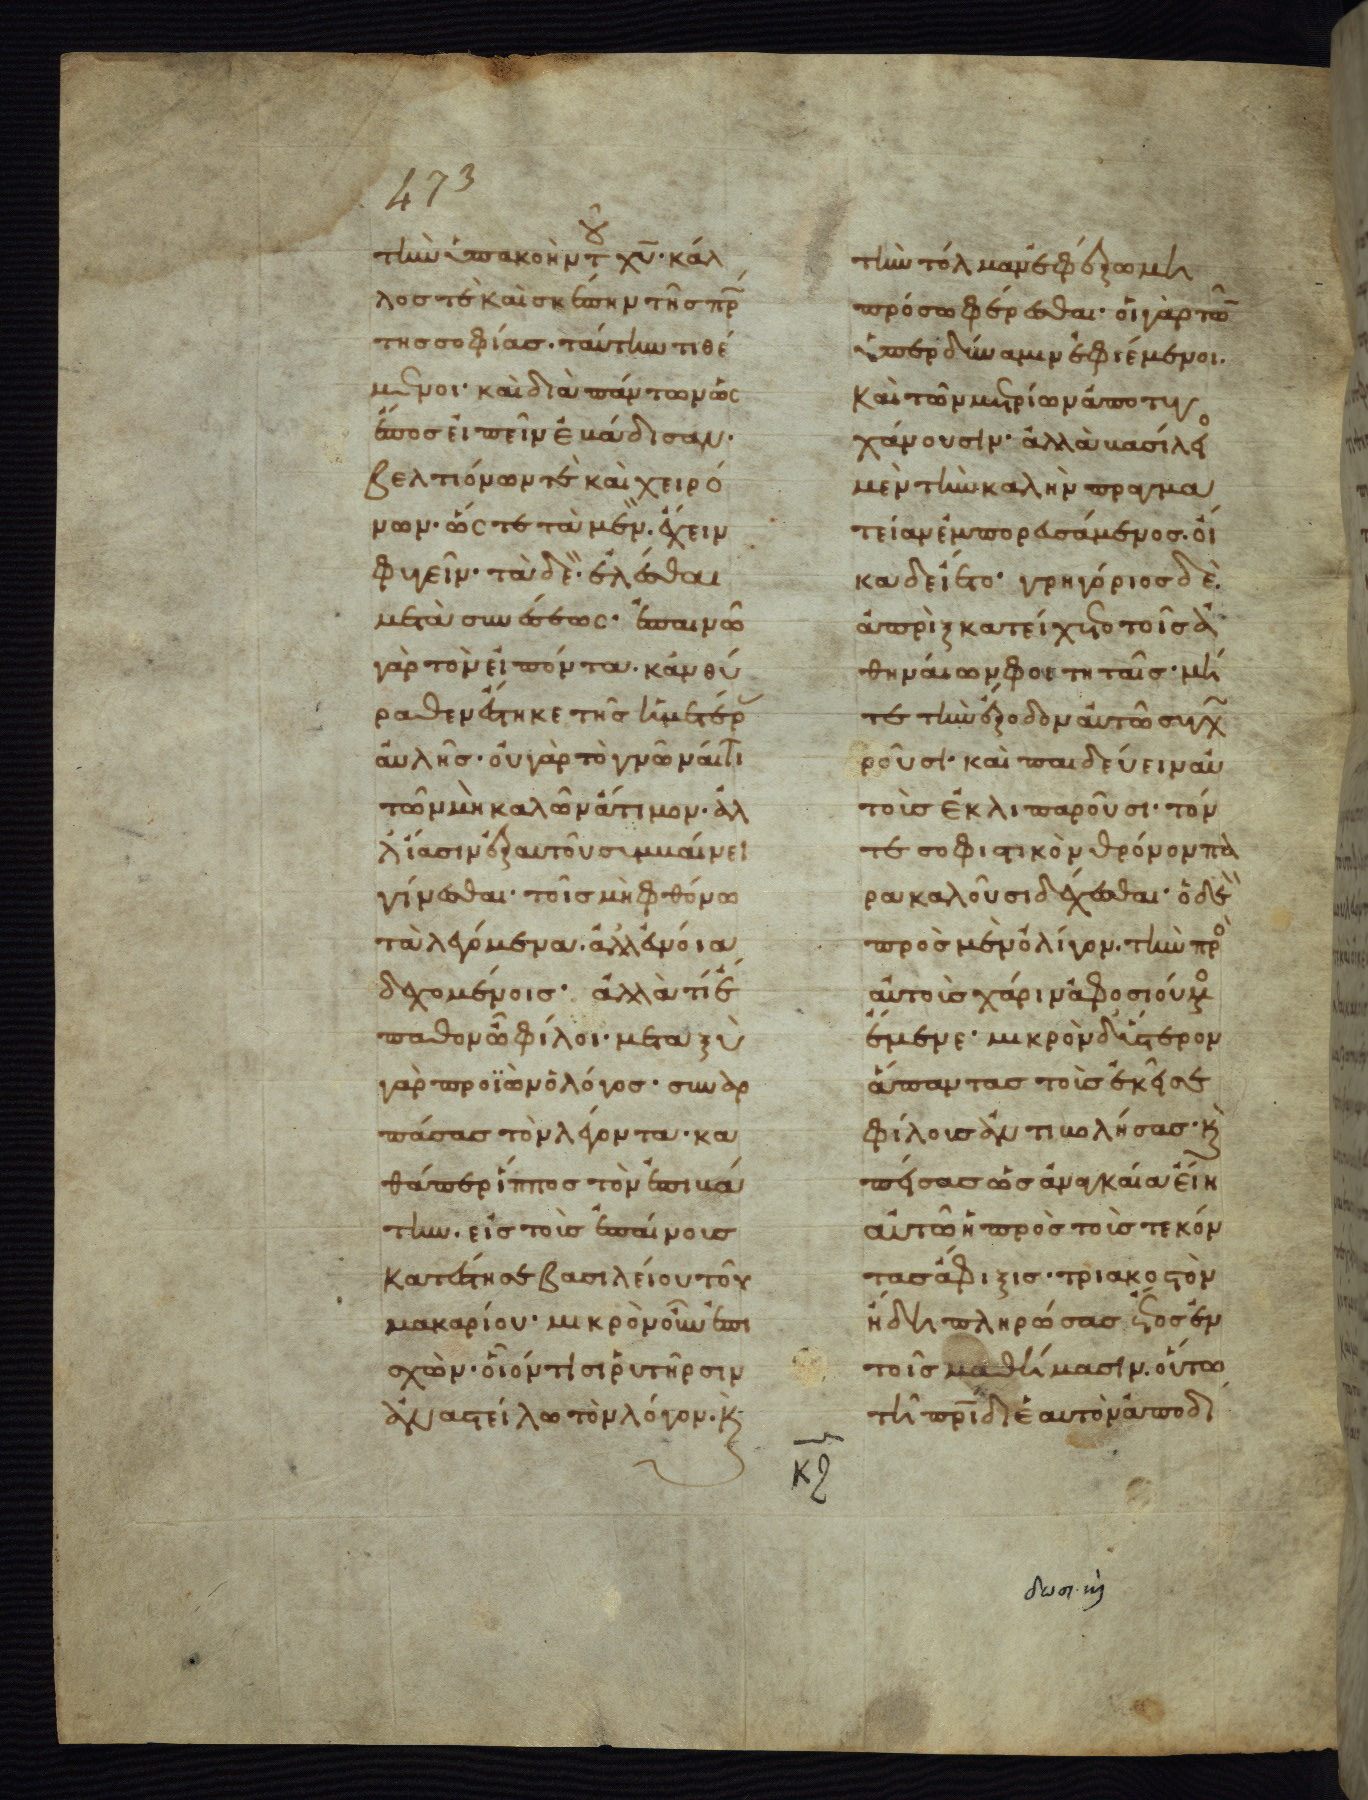 473
τὴν ὑπακοὴν τοῦ χυ̅· κάλ
λος τὲ καὶ σκέπην τῆς πρ̅
της σοφίας· ταύτην τιθέ
μενοι· καὶ διὰ πάντων ὡς
ἔπος εἰπεῖν ἐβάδισαν·
βελτιόνων τὲ καὶ χειρό
νων· ὥς τε τὰ μὲν· ἔχειν
φυγεῖν· τὰ δὲ· ἑλέσθαι
μετὰ συνέσεως· ἐπαινῶ
γὰρ τὸν εἰπόντα· κἂν θύ
ραθεν ἕστηκε τῆς ἡμετέρ
αὐλῆς· οὐ γὰρ τὸ γνῶναί τι
τῶν μὴ καλῶν ἄτιμον· ἀλ
λ' ἴασιν ἐξ αυτοῦ συμβαίνει
γίνεσθαι· τοῖς μὴ φθόνω
τὰ λεγόμενα· ἀλλ' εὐνοία
δεχομένοις· ἀλλὰ τί ἔ
παθον ὦ φίλοι· μεταξὺ
γὰρ προϊὼν ὁ λόγος· συναρ
πάσας τὸν λέγοντα· κα
θάπερ ἵππος τὸν ἐπιβά
την· εἰς τοὺς ἐπαίνους
κατέστησε βασιλείου τοῦ
μακαρίου· μικρὸν οὖν ἐπι
σχὼν· οἷόν τισι ῥυτῆρσιν
ἀναστείλω τὸν λόγον· κ̀
τὴν τόλμαν ἐφέξω μὴ
πρόσω φέρεσθαι· οἱ γὰρ τῶ̅
ὑπὲρ δύναμιν ἐφιέμενοι·
καὶ τῶν μετρίων ἀποτυγ
χάνουσιν· ἀλλὰ βασίλει
μὲν τὴν καλὴν πραγμα
τείαν ἐμπορευσάμενος· οἴ
καδε ἵετο· γρηγόριος δὲ·
ἀπρὶξ κατείχετο τοῖς ἀ
θηναίων φοιτηταῖς· μή
τε τὴν ἔξοδον αὐτῶ συγχ
ροῦσι· καὶ παιδεύειν αὐ
τοὺς ἐκλιπαροῦσι· τόν
τε σοφιστικὸν θρόνον πα
ρακαλοῦσι δέχεσθαι· ὁ δὲ
πρὸς μὲν ὀλίγον· τὴν πρ
αὐτοὺς χάριν ἀφοσιούμ
ἔμενε· μικρὸν δ' ὕστερον
ἅπαντας τοὺς ἐκεῖσε
φίλους ἀντιβολήσας· κ̀
πείσας ὡς ἀναγκαία εἴη
αὐτῶ ἡ πρὸς τοὺς τεκόν
τας ἄφιξις· τριακοστὸν
ἤδη πληρώσας ἔτος ἐν
τοῖς μαθήμασιν· οὕτω
τῆ πρ̅ίδι ἑαυτὸν ἀποδί